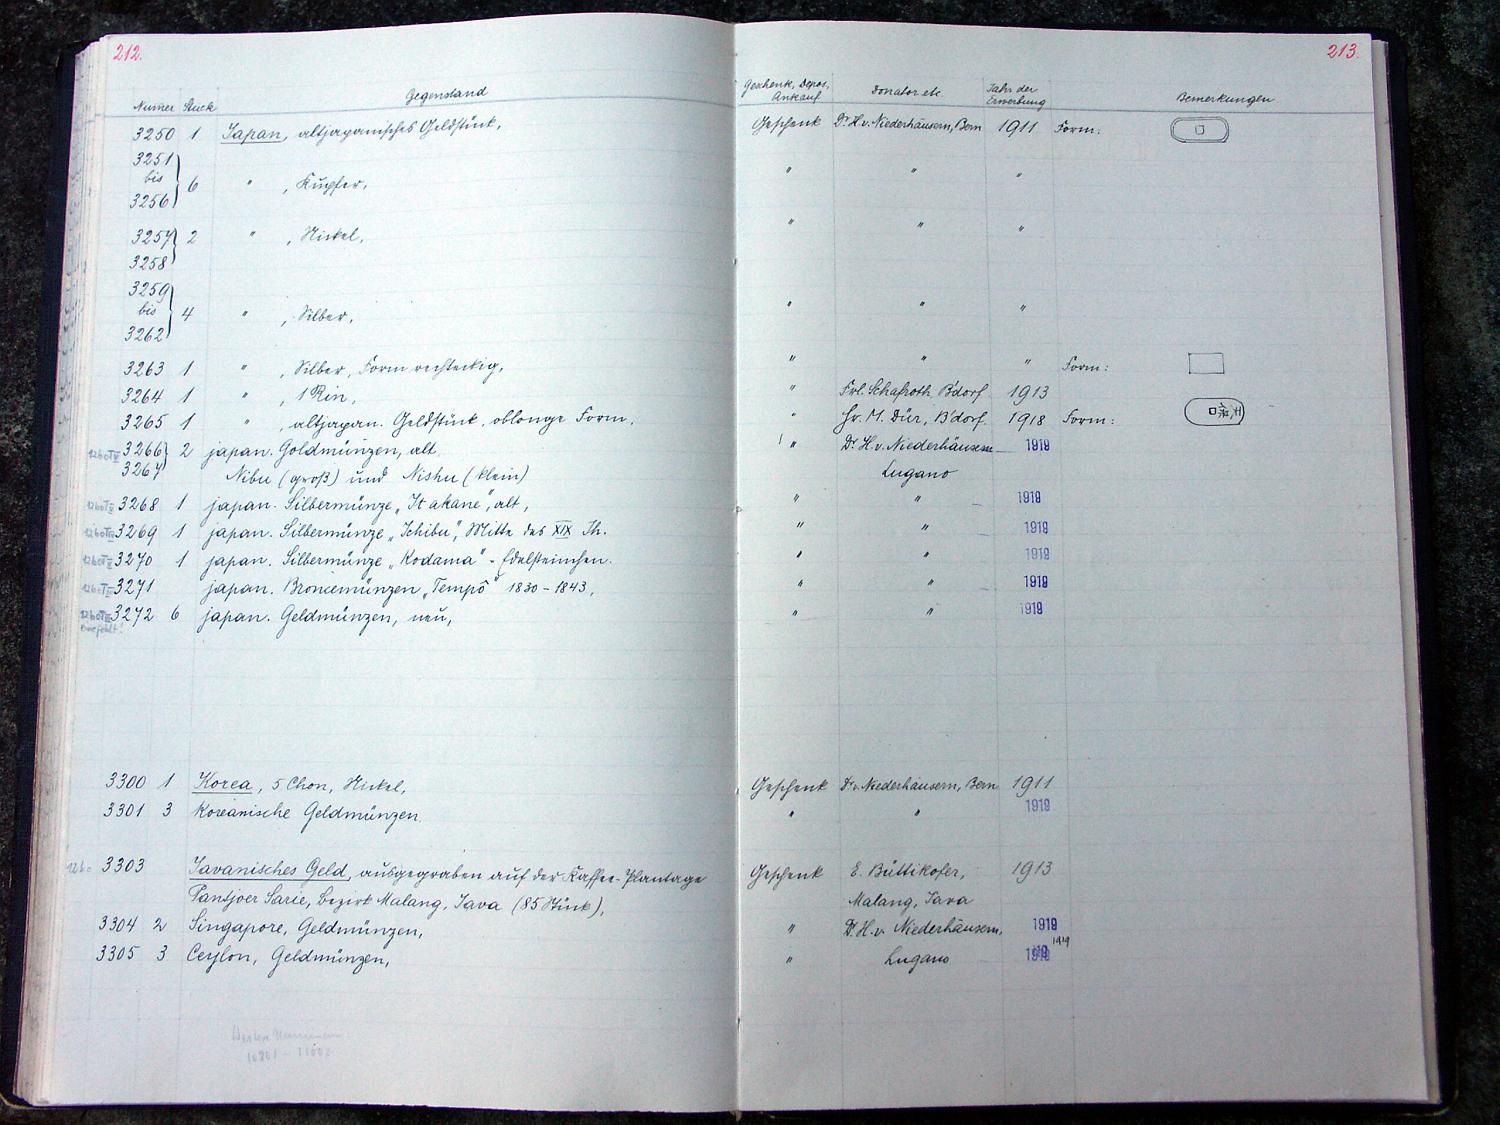 212.
213.
Numer Stück Gegenstand Geschenk, Depos, Ankauf Donator etc. Jahr der Erwerbung Bemerkungen
3250 1 Japan, altjapanisches Geldstück, Geschenk Dr. H. v. Niederhäusern, Bern 1911 Form:
3251
bis 6 " , Kupfer, " " "
3256
3257 2 " , Nickel, " " "
3258
3259
bis 4 " , Silber, " " "
3262
3263 1 " , Silber, Form rechteckig, " " " Form:
3264 1 " , 1 Rin, " Frl. Schafroth, B'dorf 1913
3265 1 " , altjapan. Geldstück, oblonge Form, " Hr. M. Dür, B'dorf 1918 Form:
3266 2 japan. Goldmünzen, alt " Dr. H. v. Niederhäusern 1919
3267 Nibu (groß) und Nishu (klein) Lugano
3268 1 japan. Silbermünze „Itakane", alt, " " 1919
3269 1 japan. Silbermünze „Ichibu", Mitte des XIX Jh. " " 1919
3270 1 japan. Silbermünze „Kodama" - Edelsteinchen. " " 1919
3271 japan. Broncemünzen „Tempô" 1830 - 1843, " " 1919
3272 6 japan. Geldmünzen, neu, " " 1919
eine fehlt!
3300 1 Korea, 5 Chon, Nickel, Geschenk Dr. v. Niederhäusern, Bern 1911
3301 3 Koreanische Geldmünzen " " 1919
1260 3303 Javanisches Geld, ausgegraben auf der Kaffee-Plantage Geschenk E. Büttikofer, 1913
Pantjoer Sarie, Bezirk Malang, Java (85 Stück), Malang, Java
3304 2 Singapore, Geldmünzen, " Dr. H. v. Niederhäusern, 1919
3305 3 Ceylon, Geldmünzen, " Lugano 1919 1919